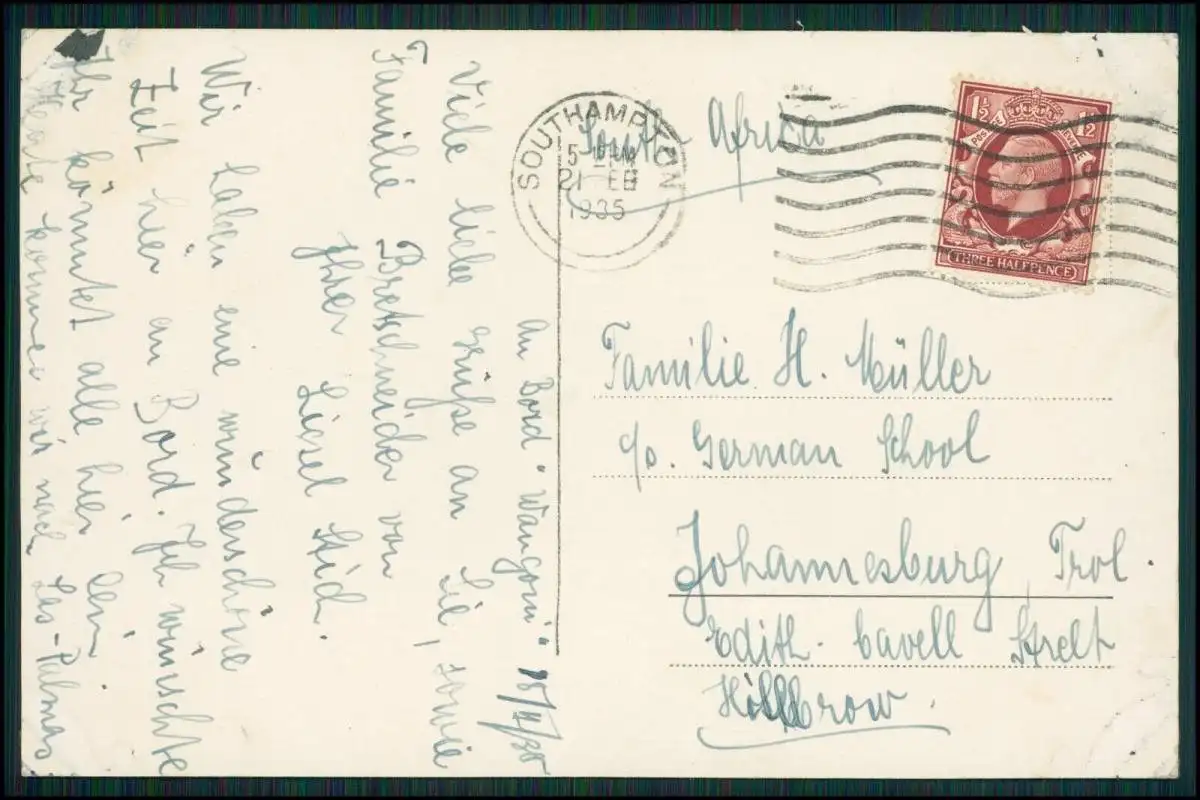 An Bord "Wangoni"
Viele liebe Grüße an Sie, sowie
Familie Bretschneider von
Ihrer Liesel
Wir haben eine wunderschöne
Zeit hier an Bord. Ich wünschte
Ihr könntet alle hier sein
Heute kommen wir nach Las-Palmas.
SOUTHAMPTON
5 PM
21 FEB
1935
South Africa
1½ 1½
POSTAGE REVENUE
THREE HALFPENCE
Familie H. Müller
c/o. German School
Johannesburg Trol
Edith Cavell Street
Hillbrow.